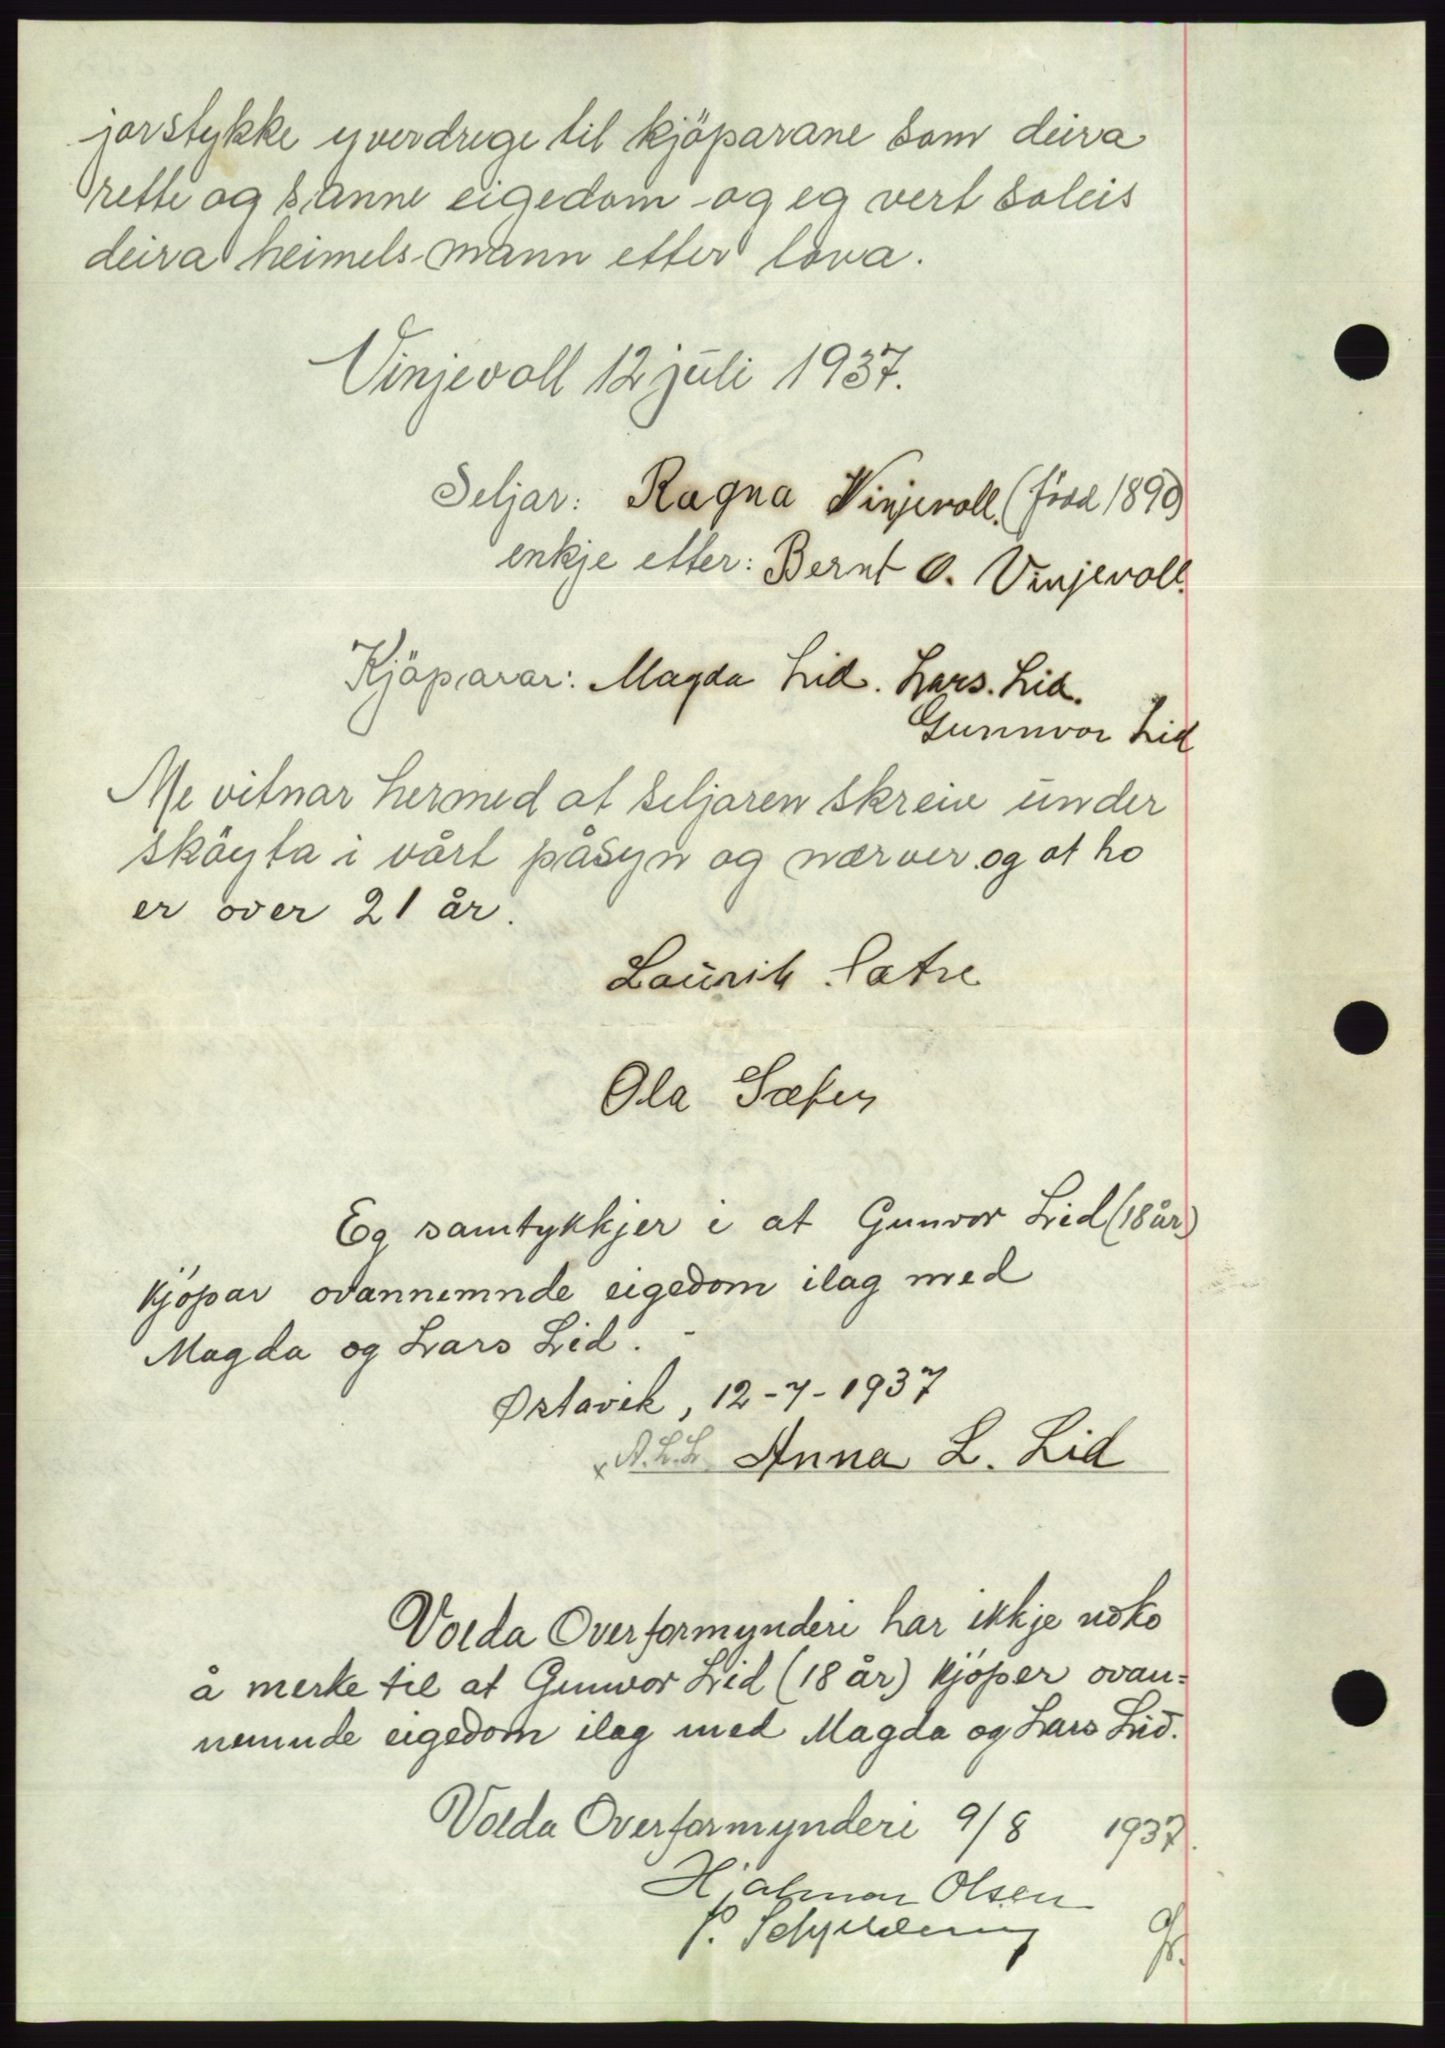 jorstykke yverdrege til kjöparane som deira
rette og sanne eigedom og eg vert soleis
deira heimels-mann etter lova.
Vinjevoll 12 juli 1937.
Seljar: Ragna Vinjevoll. (född 1890)
enkje etter: Bernt O. Vinjevoll.
Kjöparar: Magda Lid. Lars. Lid.
Gunnvor Lid
Me vitnar hermed at seljaren skreiv under
sköyta i vårt påsyn og nærver og at ho
er over 21 år.
Laurits Sætre
Ola
Eg samtykkjer i at Gunvor Lid (18 år)
kjöpar ovannemnde eigedom ilag med
Magda og Lars Lid. -
Ørstavik, 12-7-1937
x A.L.L. Anna L. Lid
Volda Overformynderi har ikkje noko
å merke til at Gunvor Lid (18 år) kjöper ovan=
nemnde eigedom ilag med Magda og Lars Lid.
Volda Overformynderi 9/8 1937.
Hjalmar Olsen
P.